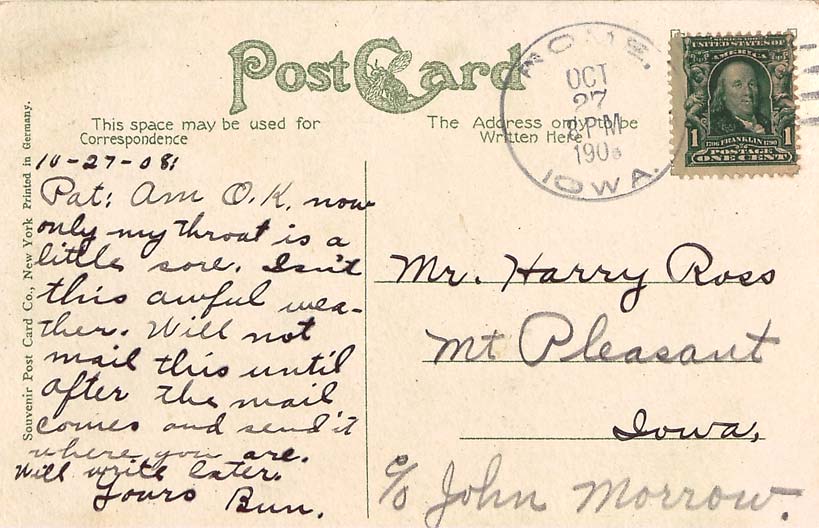 Post Card
This space may be used for
Correspondence
The Address only to be
Written Here
ROME,
OCT
27
PM
190
IOWA.
UNITED STATES OF
AMERICA
1 1
1706 FRANKLIN 1790
POSTAGE
ONE CENT
Souvenir Post Card Co., New York Printed in Germany.
10-27-08;
Pat; Am O.K. now
only my throat is a
little sore. Isn't
this awful wea-
ther. Will not
mail this until
after the mail
comes and send it
where you are.
Will write later.
Yours Bun.
Mr. Harry Ross
Mt Pleasant
Iowa,
c/o John Morrow.